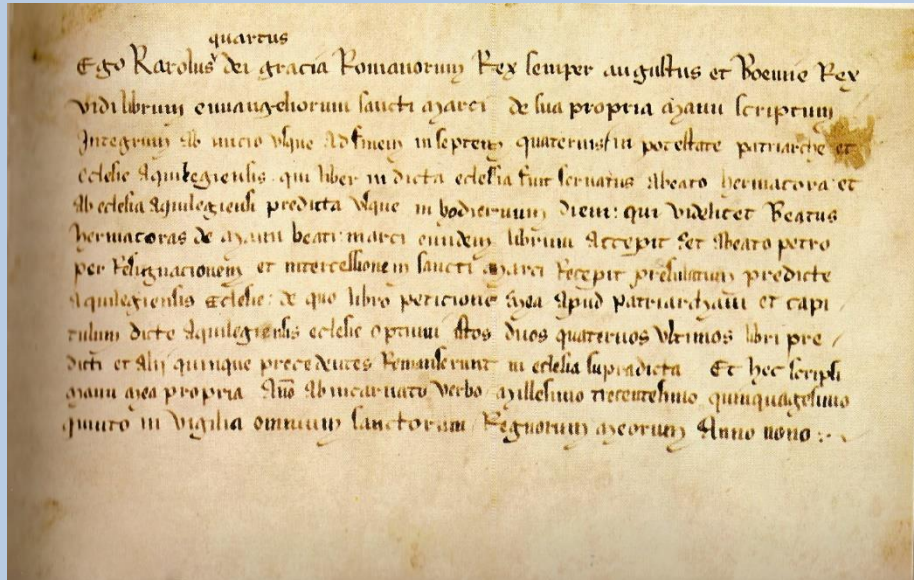 quartus
Ego Karolus dei gracia Romanorum Rex semper augustus et Boemie Rex
vidi librum ewangeliorum sancti marci de sua propria manu scriptum
Integrum ab inicio vsque ad finem in septem quaternis in potestate patriarche et
eclesie Aquilegiensis qui liber in dicta eclesia fuit servatus a beato hermacora et
ab eclesia Aquilegiensi predicta vsque in hodiernum diem: qui videlicet Beatus
hermacoras de manu beati marci eundem librum accepit et a beato petro
per Resignacionem et intercessionem sancti marci Recepit presulatum predicte
Aquilegiensis Eclesie: de quo libro peticione mea apud patriarcham et capi
tulum dicte Aquilegiensis eclesie optinui istos duos quaternos vltimos libri pre
dicti et alij quinque precedentes Remanserunt in eclesia supradicta Et hec scripsi
manu mea propria Ano ab incarnato verbo millesimo trecentesimo quinquagesimo
quinto in vigilia omnium sanctorum Regnorum meorum Anno nono: